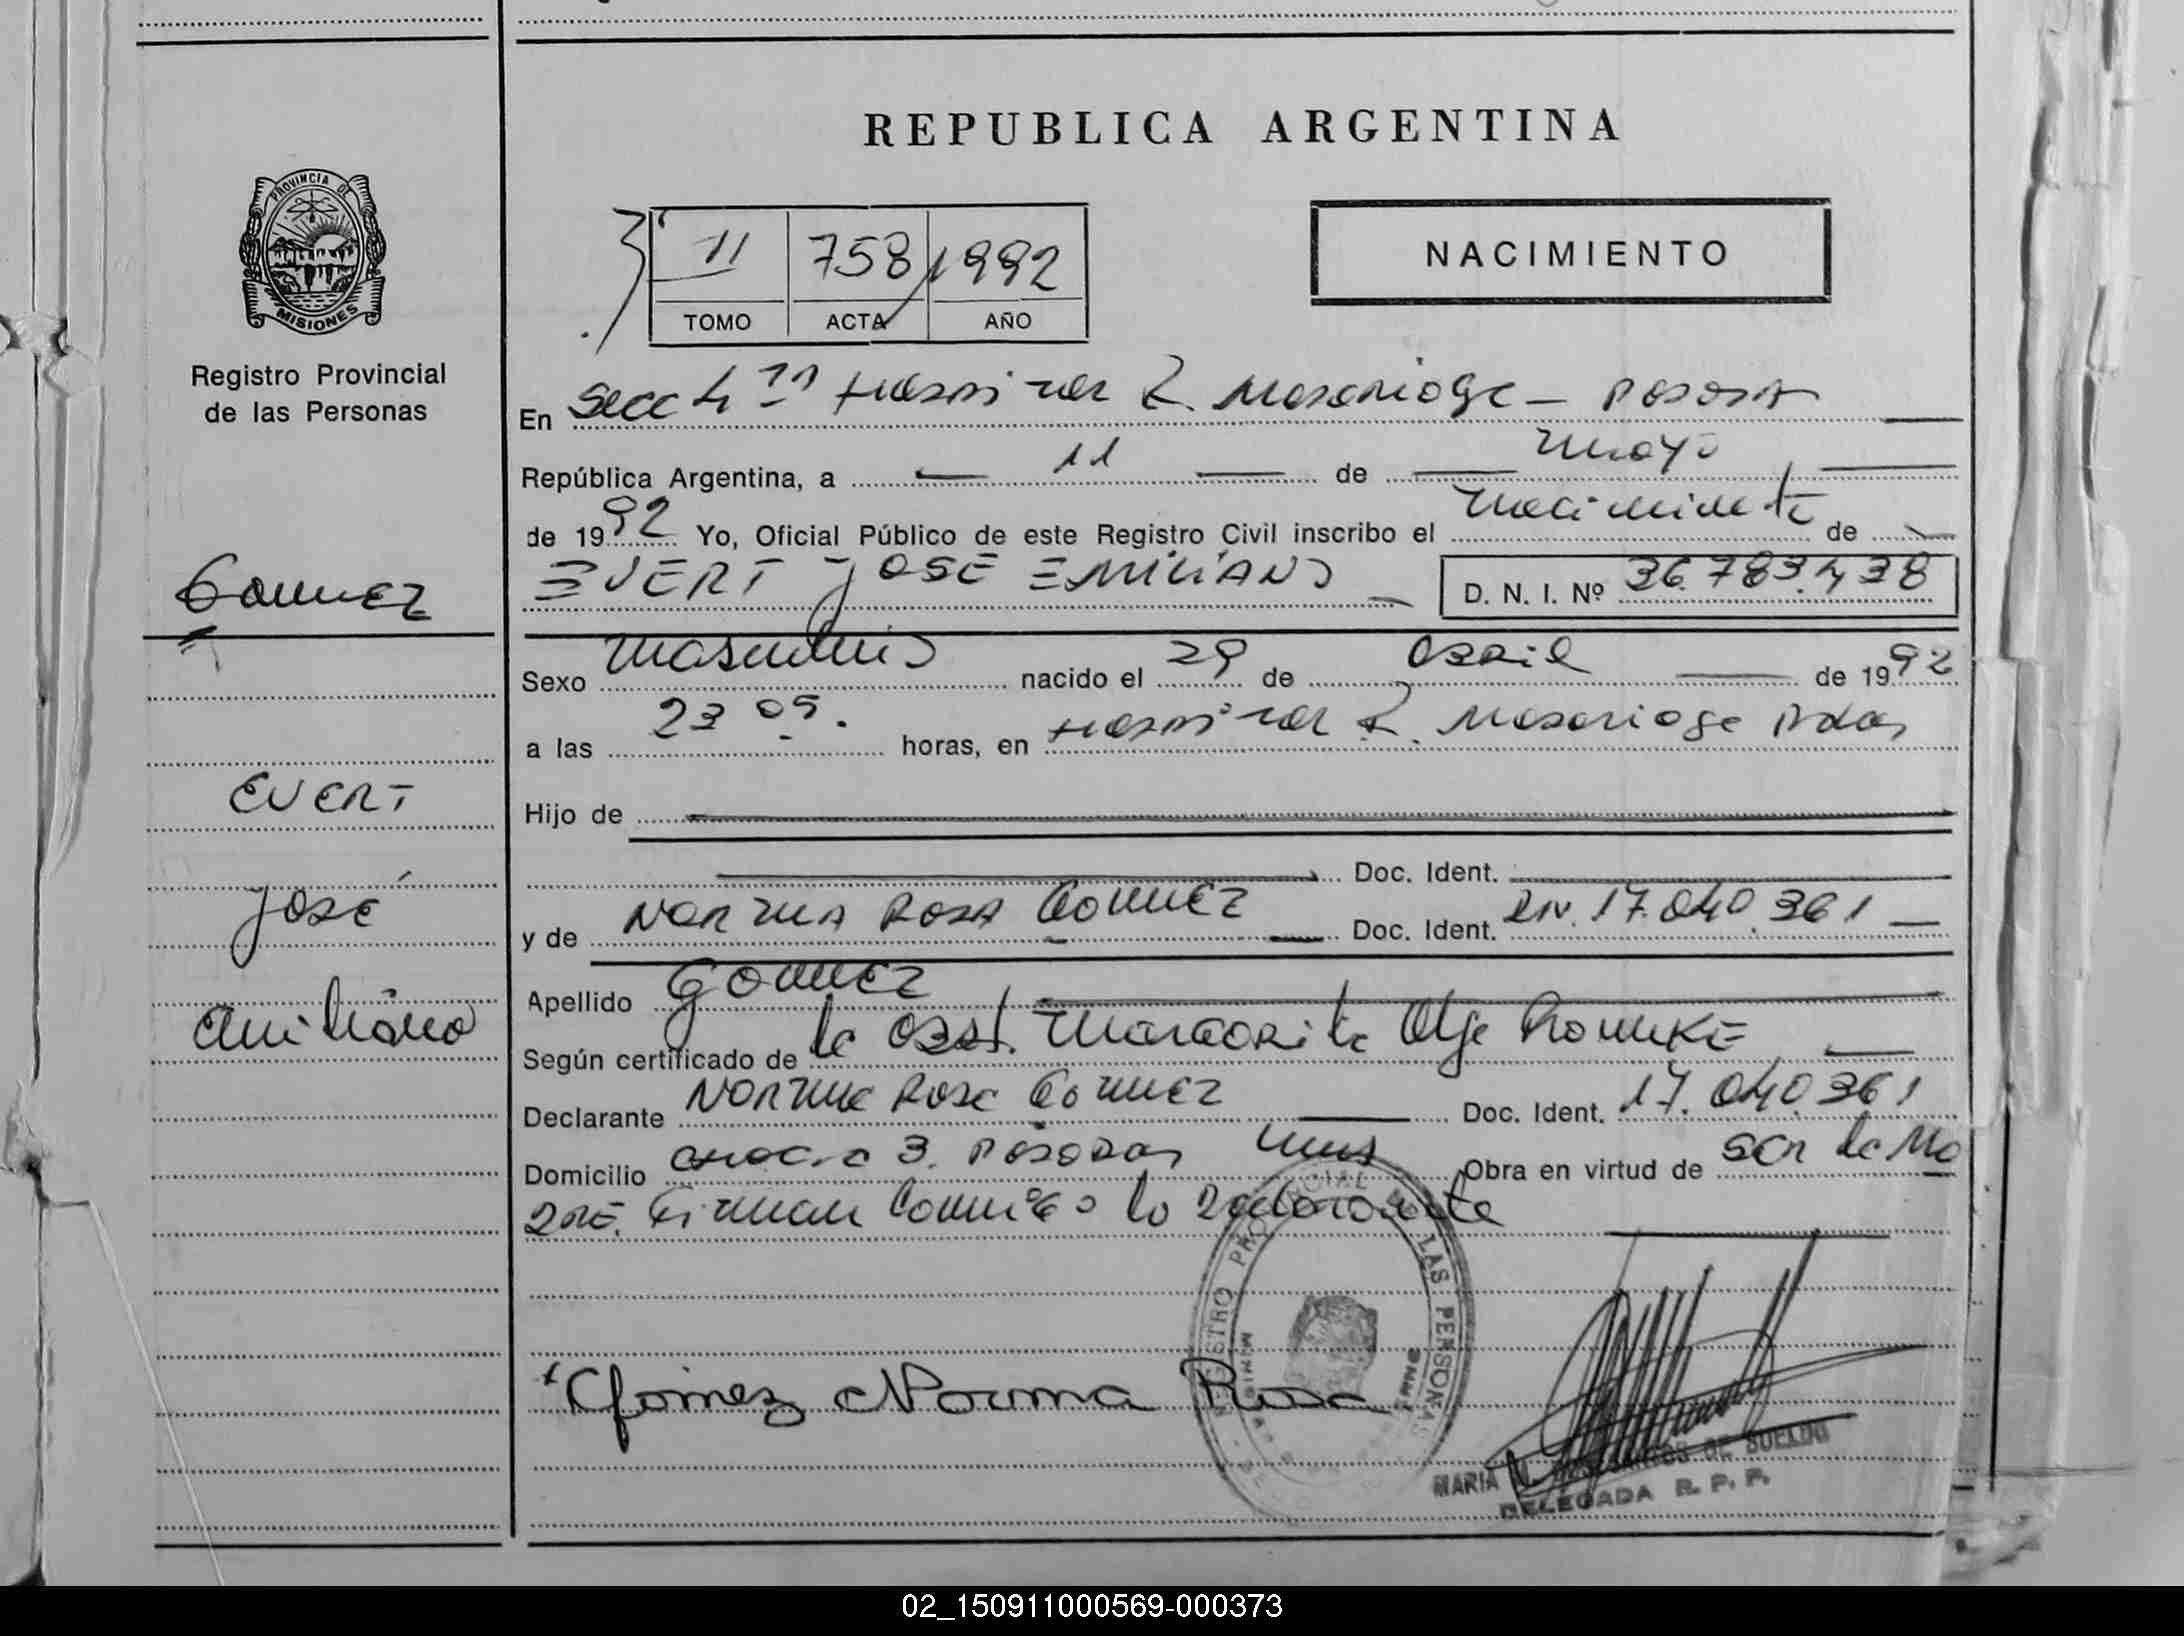 REPUBLICA ARGENTINA
PROVINCIA DE
MISIONES
Registro Provincial
de las Personas
II 758 1992
TOMO ACTA AÑO
NACIMIENTO
En Secc 4ta Hospital R. Madariaga - Posadas
República Argentina, a 11 de mayo
de 1992 Yo, Oficial Público de este Registro Civil inscribo el nacimiento de
Gomez
EVERT JOSE EMILIANO D. N. I. Nº 36.783.438
Sexo masculino nacido el 29 de abril de 1992
a las 23 05. horas, en Hospital R. Madariaga Pdas
EVERT
Hijo de
Doc. Ident.
José
y de NORMA ROSA Gomez Doc. Ident. DN. 17.040.361
Apellido Gomez
Emiliano
Según certificado de la Obst. Margarita Olga
Declarante Norma Rosa Gomez Doc. Ident. 17.040361
Domicilio Chacra 3. Posadas Mnes Obra en virtud de ser la Ma
dre. Firman conmigo la declarante
REGISTRO PROVINCIAL DE LAS PERSONAS
Gomez Norma Rosa
MARIA DE SUELDO
DELEGADA R. P. P.
02_150911000569-000373